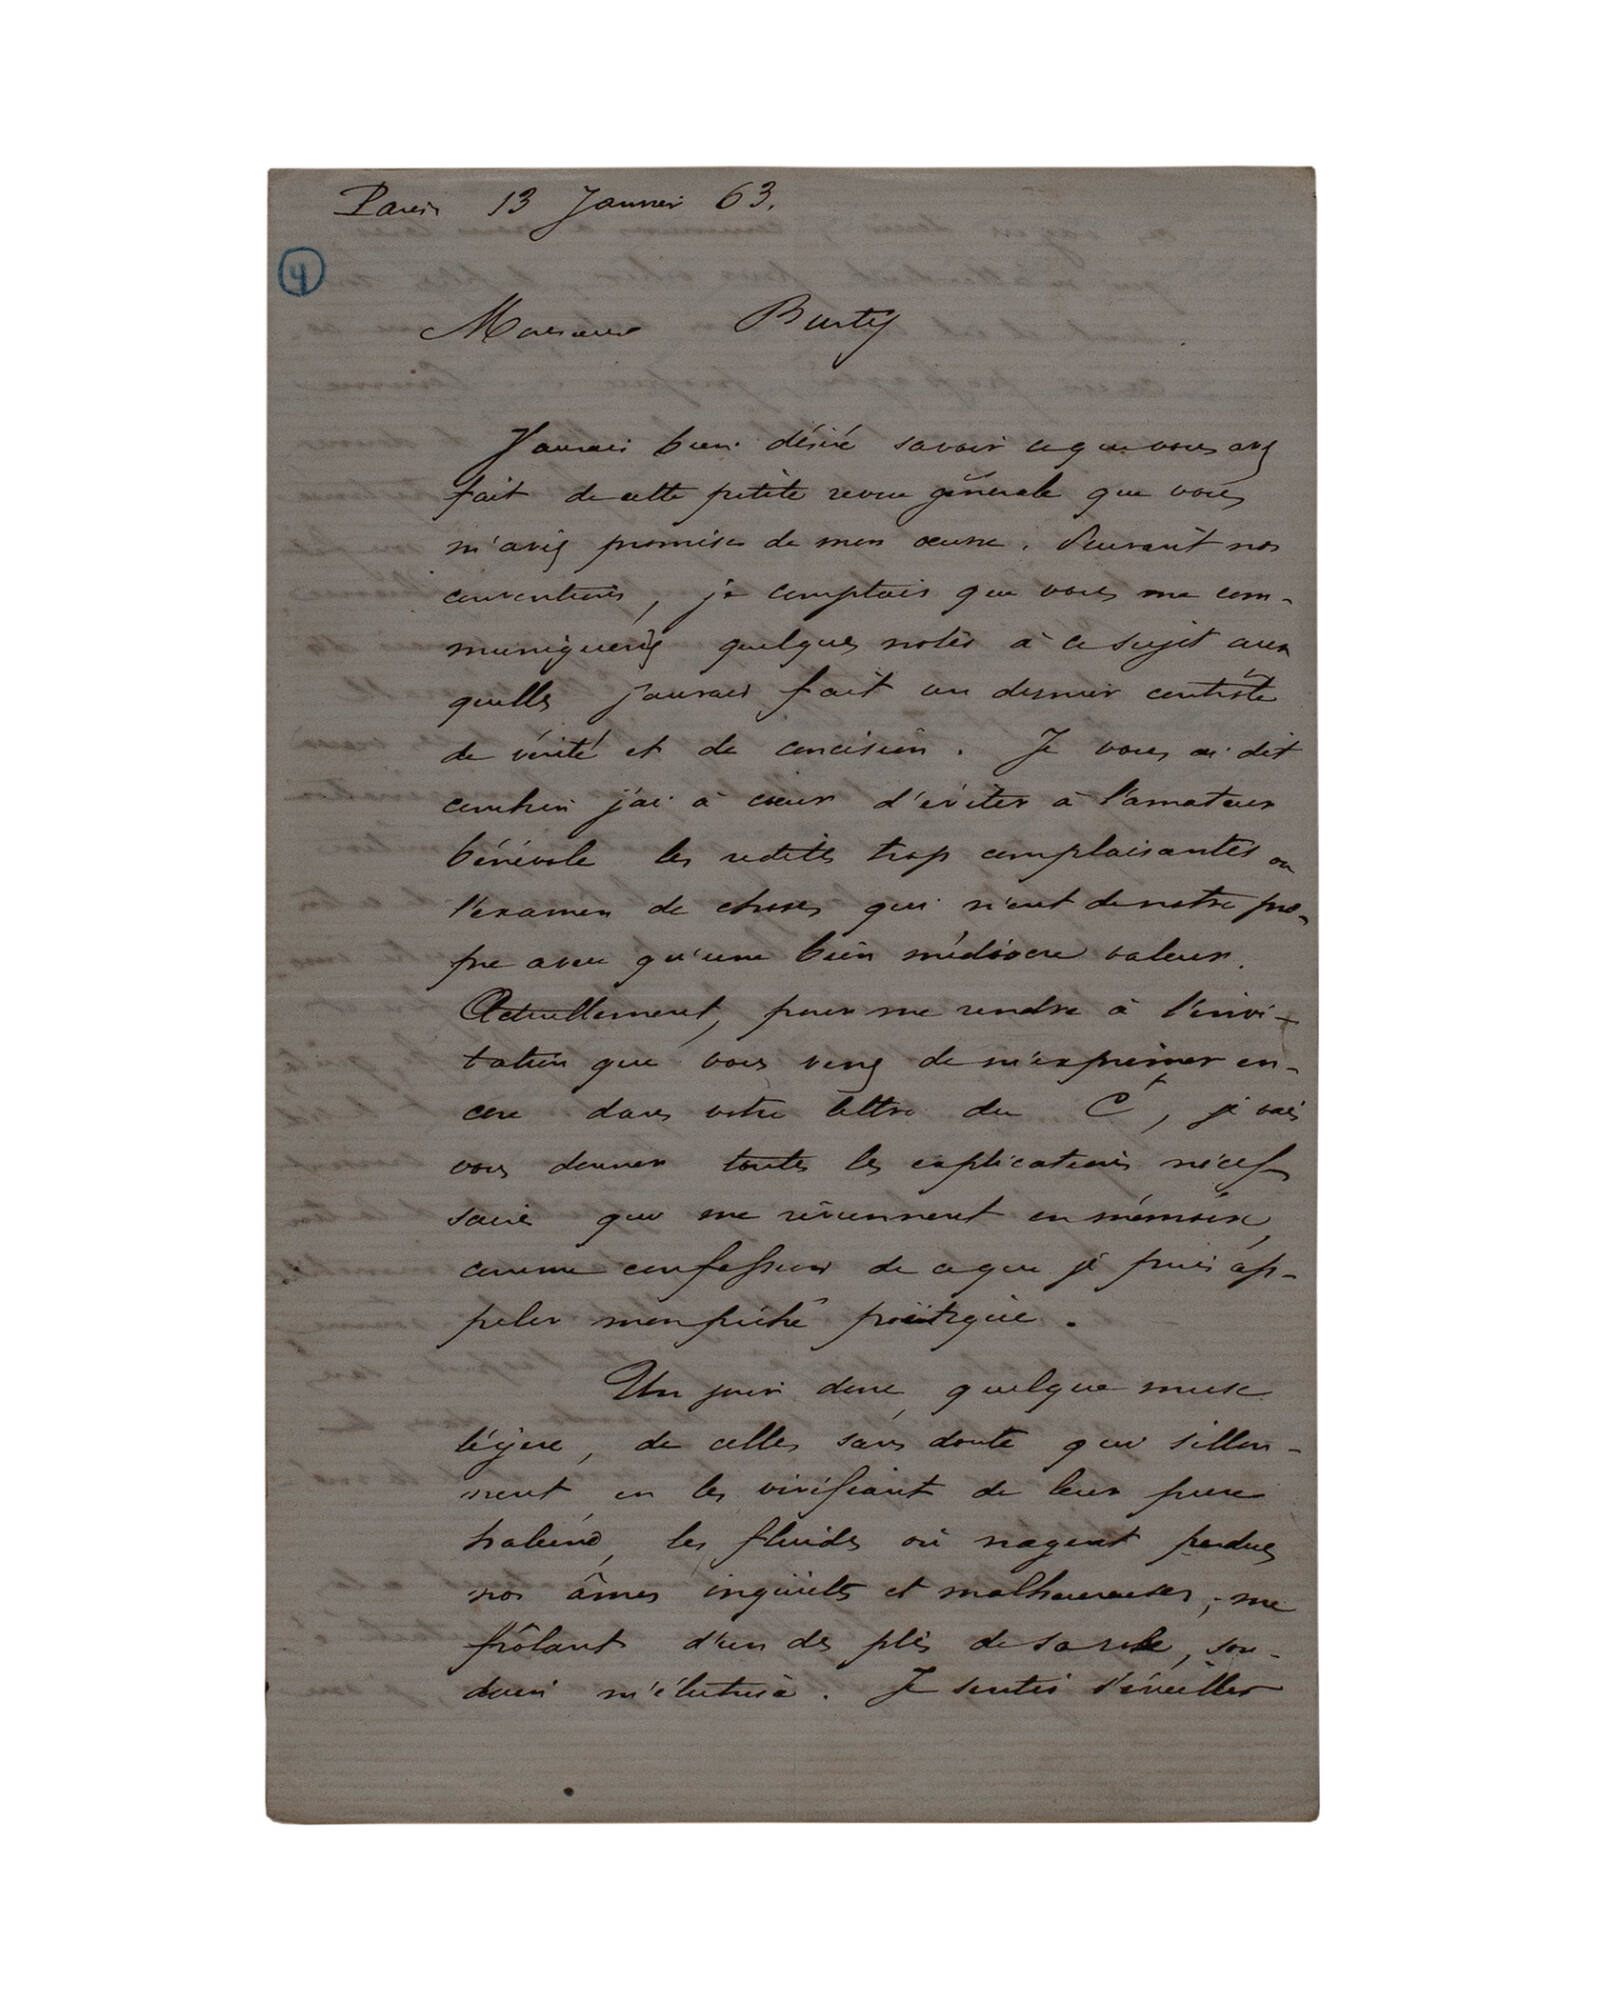 Paris 13 Janvier 63.
4
Monsieur Burty
J'aurais bien désiré savoir ce que vous avez
fait de cette petite revue générale que vous
m'aviez promise de mon œuvre. Suivant nos
conventions, je comptais que vous me com-
muniqueriez quelques notes à ce sujet aux
quelles j'aurais fait un dernier contrôle
de vérité et de concision. Je vous ai dit
combien j'ai à cœur d'éviter à l'amateur
bénévole les redites trop complaisantes ou
l'examen de choses qui n'ont de notre pro-
pre aveu qu'une bien médiocre valeur.
Actuellement, pour me rendre à l'invi-
tation que vous venez de m'exprimer en-
core dans votre lettre du Ct, je vais
vous donner toutes les explications néces
saires qui me reviennent en mémoire,
comme confession de ce que je puis ap-
peler mon péché poëtique.
Un jour donc, quelque muse
légère, de celles sans doute qui sillon-
nent en les vivifiant de leur pure
haleine, les fluides où nagent perdues
nos âmes inquiètes et malheureuses, me
frôlant d'un des plis de sa robe, sou-
dain m'électrisa. Je sentis s'éveiller